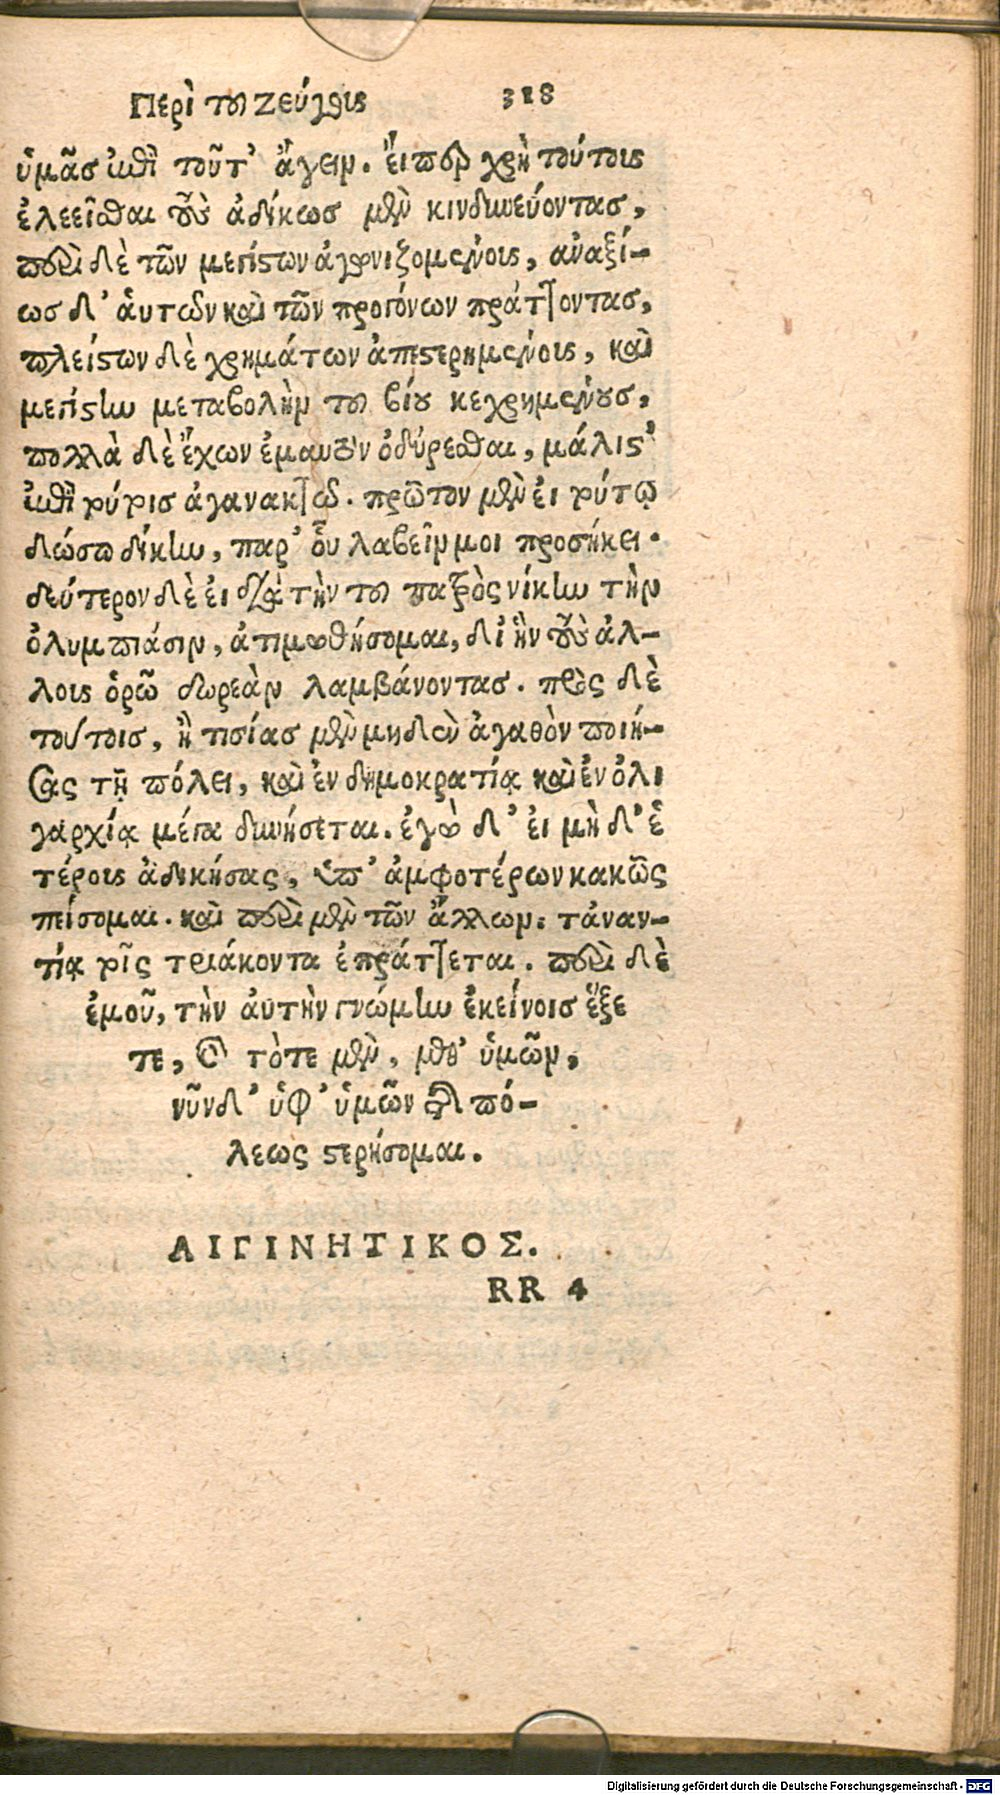 Περὶ τοῦ Ζεύγους 318
ὑμᾶς ἐπὶ τοῦτ' ἄγειν. εἴπερ χρὴ τούτους
ἐλεεῖσθαι τοὺς ἀδίκως μὲν κινδυνεύοντας,
περὶ δὲ τῶν μεγίστων ἀγωνιζομένους, ἀναξί-
ως δ' αὑτῶν καὶ τῶν προγόνων πράττοντας,
πλείστων δὲ χρημάτων ἀπεστερημένους, καὶ
μεγίστῃ μεταβολῇ τοῦ βίου κεχρημένους,
πολλὰ δὲ ἔχων ἐμαυτὸν ὀδύρεσθαι, μάλιστ'
ἐπὶ τούτοις ἀγανακτῶ. πρῶτον μὲν εἰ τούτῳ
δώσω δίκην, παρ' οὗ λαβεῖν μοι προσήκει.
δεύτερον δὲ εἰ διὰ τὴν τοῦ πατρὸς νίκην τὴν
ὀλυμπιάσιν, ἀτιμωθήσομαι, δι' ἣν τοὺς ἄλ-
λους ὁρῶ δωρεὰν λαμβάνοντας. πρὸς δὲ
τούτοις, ἢ τισίας μὲν μηδὲν ἀγαθὸν ποιή-
σας τῇ πόλει, καὶ ἐν δημοκρατίᾳ καὶ ἐν ὀλι
γαρχίᾳ μέγα δυνήσεται. ἐγὼ δ' εἰ μὴ δ' ἑ
τέρους ἀδικήσας, ὑπ' ἀμφοτέρων κακῶς
πείσομαι. καὶ περὶ μὲν τῶν ἄλλων: τἀναν-
τία τοῖς τριάκοντα ἐπράττεται. περὶ δὲ
ἐμοῦ, τὴν αὐτὴν γνώμην ἐκείνοις ἕξε
τε, καὶ τότε μὲν, μεθ' ὑμῶν,
νῦν δ' ὑφ' ὑμῶν τῆς πό-
λεως στερήσομαι.
ΑΙΓΙΝΗΤΙΚΟΣ.
RR 4
Digitalisierung gefördert durch die Deutsche Forschungsgemeinschaft - DFG